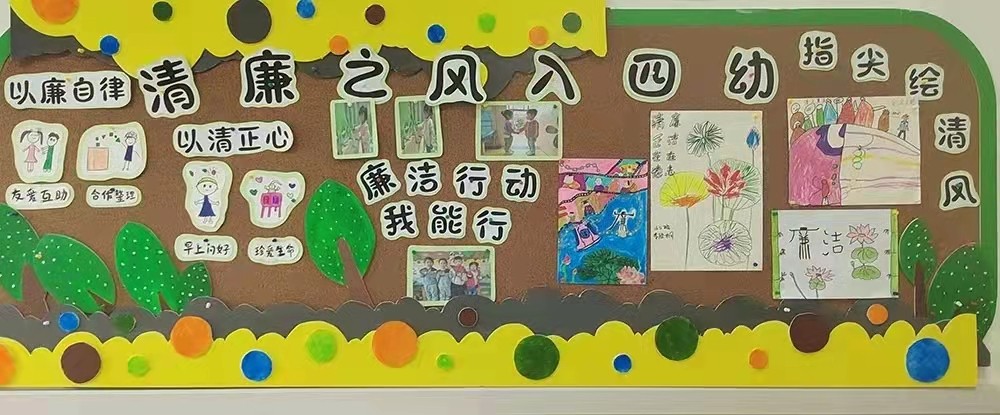 清廉之风入四幼
以廉自律
友爱互助
合作整理
以清正心
早上问好
珍爱生命
廉洁行动
我能行
指尖绘清风
廉洁